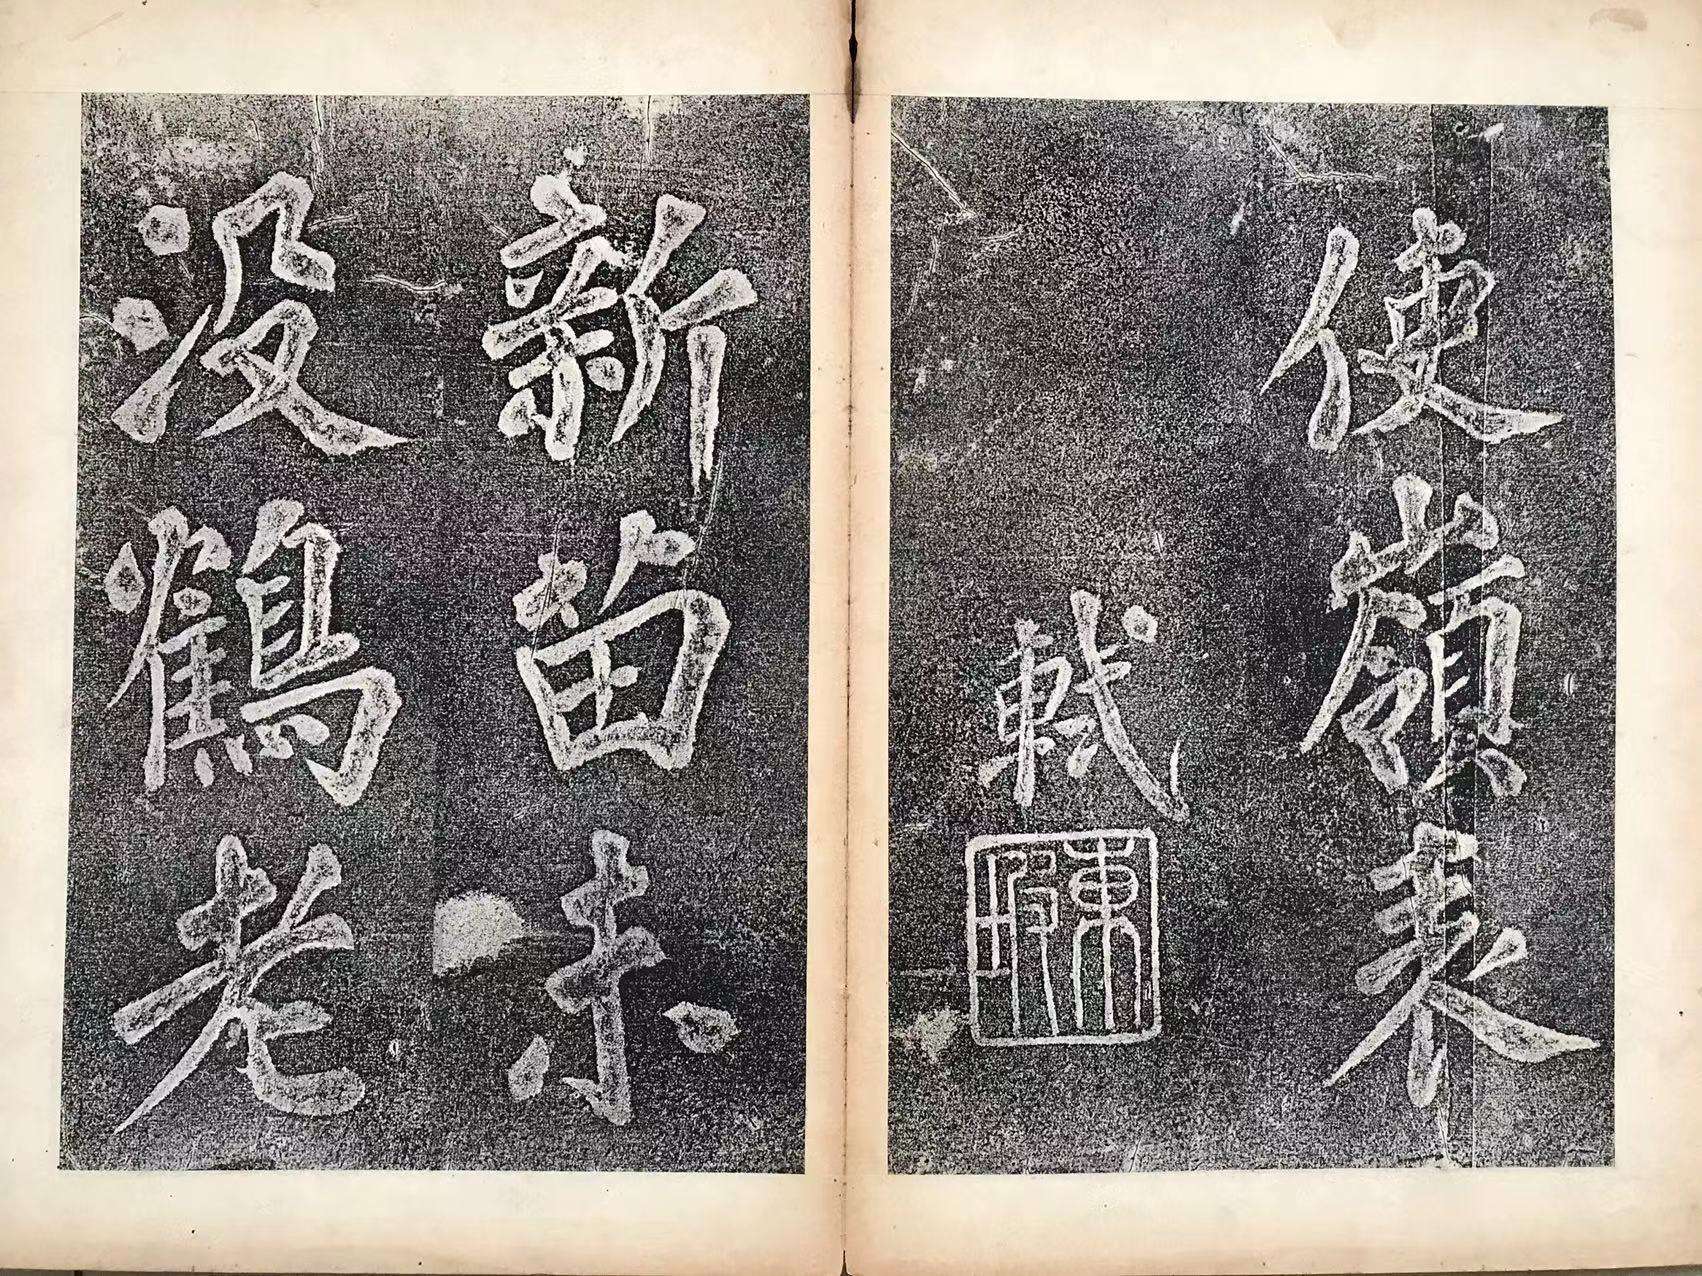 使嶺表
軾
東坡
新苗未
没鶴老